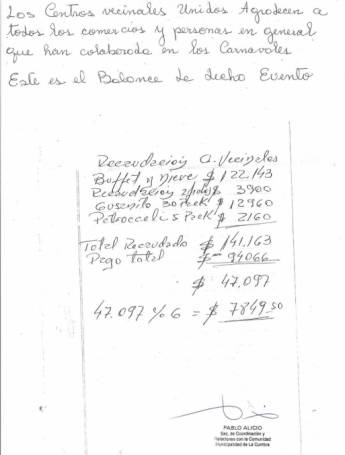 Los Centros vecinales Unidos Agradecen a
todos los comercios y personas en general
que han colaborado en los Carnavales
Este es el Balance de dicho Evento
Recaudación A. Vecinales
Buffet y Nieve $ 122.143
Recaudación $ 3900
Gusanito 30 Pack $ 12960
Petroccelis Pack $ 2160
Total Recaudado $ 141.163
Pago total $ - 94066
$ 47.097
47.097 % 6 = $ 7849.50
PABLO ALICIO
Sec. de Coordinación y
Relaciones con la Comunidad
Municipalidad de La Cumbre